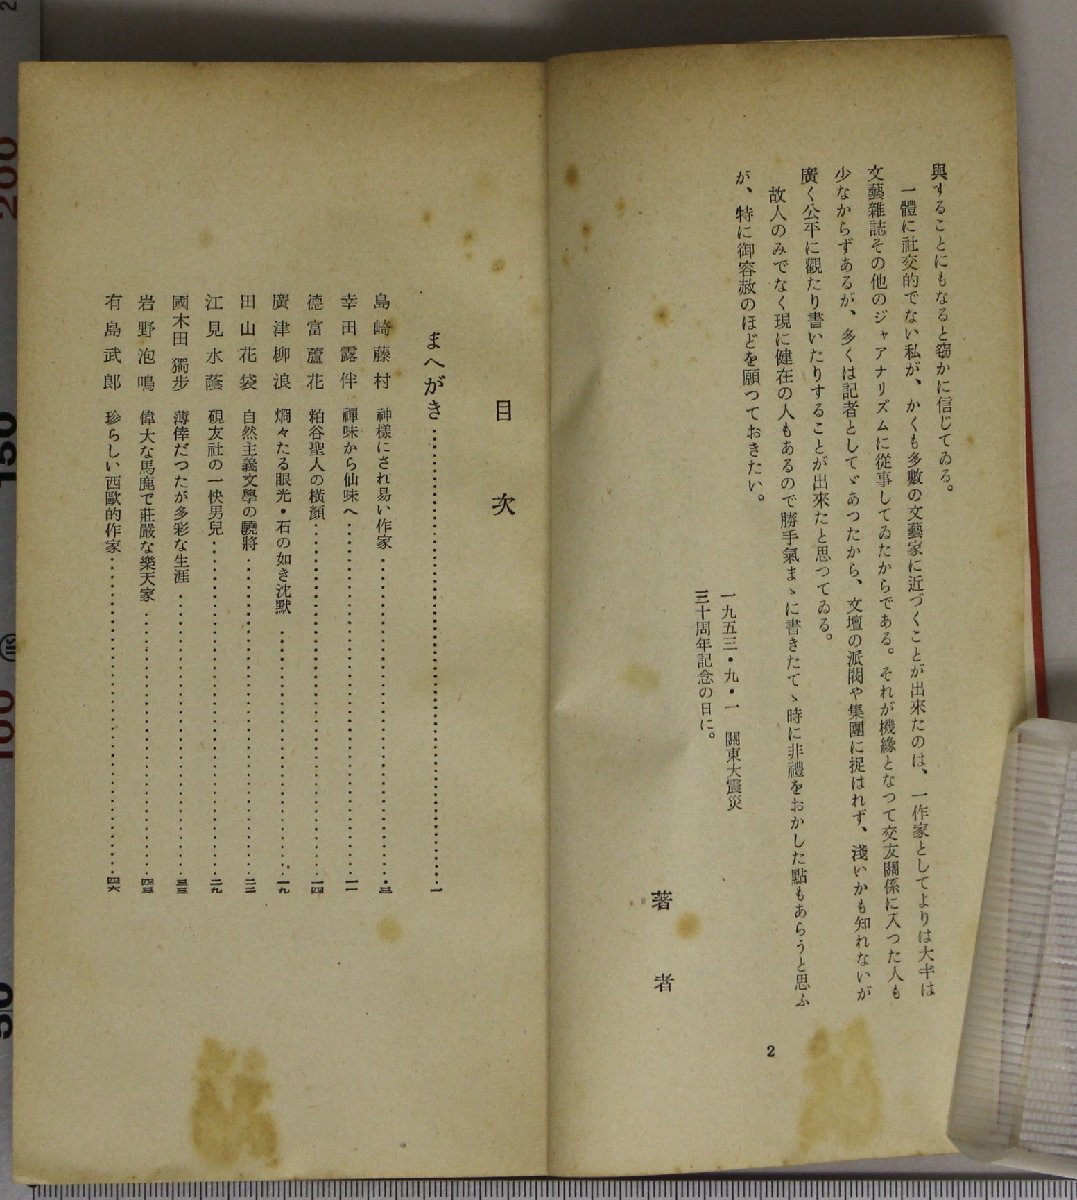 與することにもなると窃かに信じてゐる。
一體に社交的でない私が、かくも多數の文藝家に近づくことが出來たのは、一作家としてよりは大半は
文藝雜誌その他のジャアナリズムに從事してゐたからである。それが機緣となつて交友關係に入つた人も
少なからずあるが、多くは記者としてゞあつたから、文壇の派閥や集團に捉はれず、淺いかも知れないが
廣く公平に觀たり書いたりすることが出來たと思つてゐる。
故人のみでなく現に健在の人もあるので勝手氣まゝに書きたてゝ時に非禮をおかした點もあらうと思ふ
が、特に御容赦のほどを願つておきたい。
一九五三・九・一 關東大震災
三十周年記念の日に。
著者
2
目次
まへがき……一
島崎藤村 神樣にされ易い作家……三
幸田露伴 禪味から仙味へ……一一
德富蘆花 粕谷聖人の橫顏……一四
廣津柳浪 烱々たる眼光・石の如き沈默……一九
田山花袋 自然主義文學の驍將……二三
江見水蔭 硯友社の一快男兒……二九
國木田獨步 薄倖だつたが多彩な生涯……三三
岩野泡鳴 偉大な馬鹿で莊嚴な樂天家……四三
有島武郎 珍らしい西歐的作家……四六
200
150
100
50